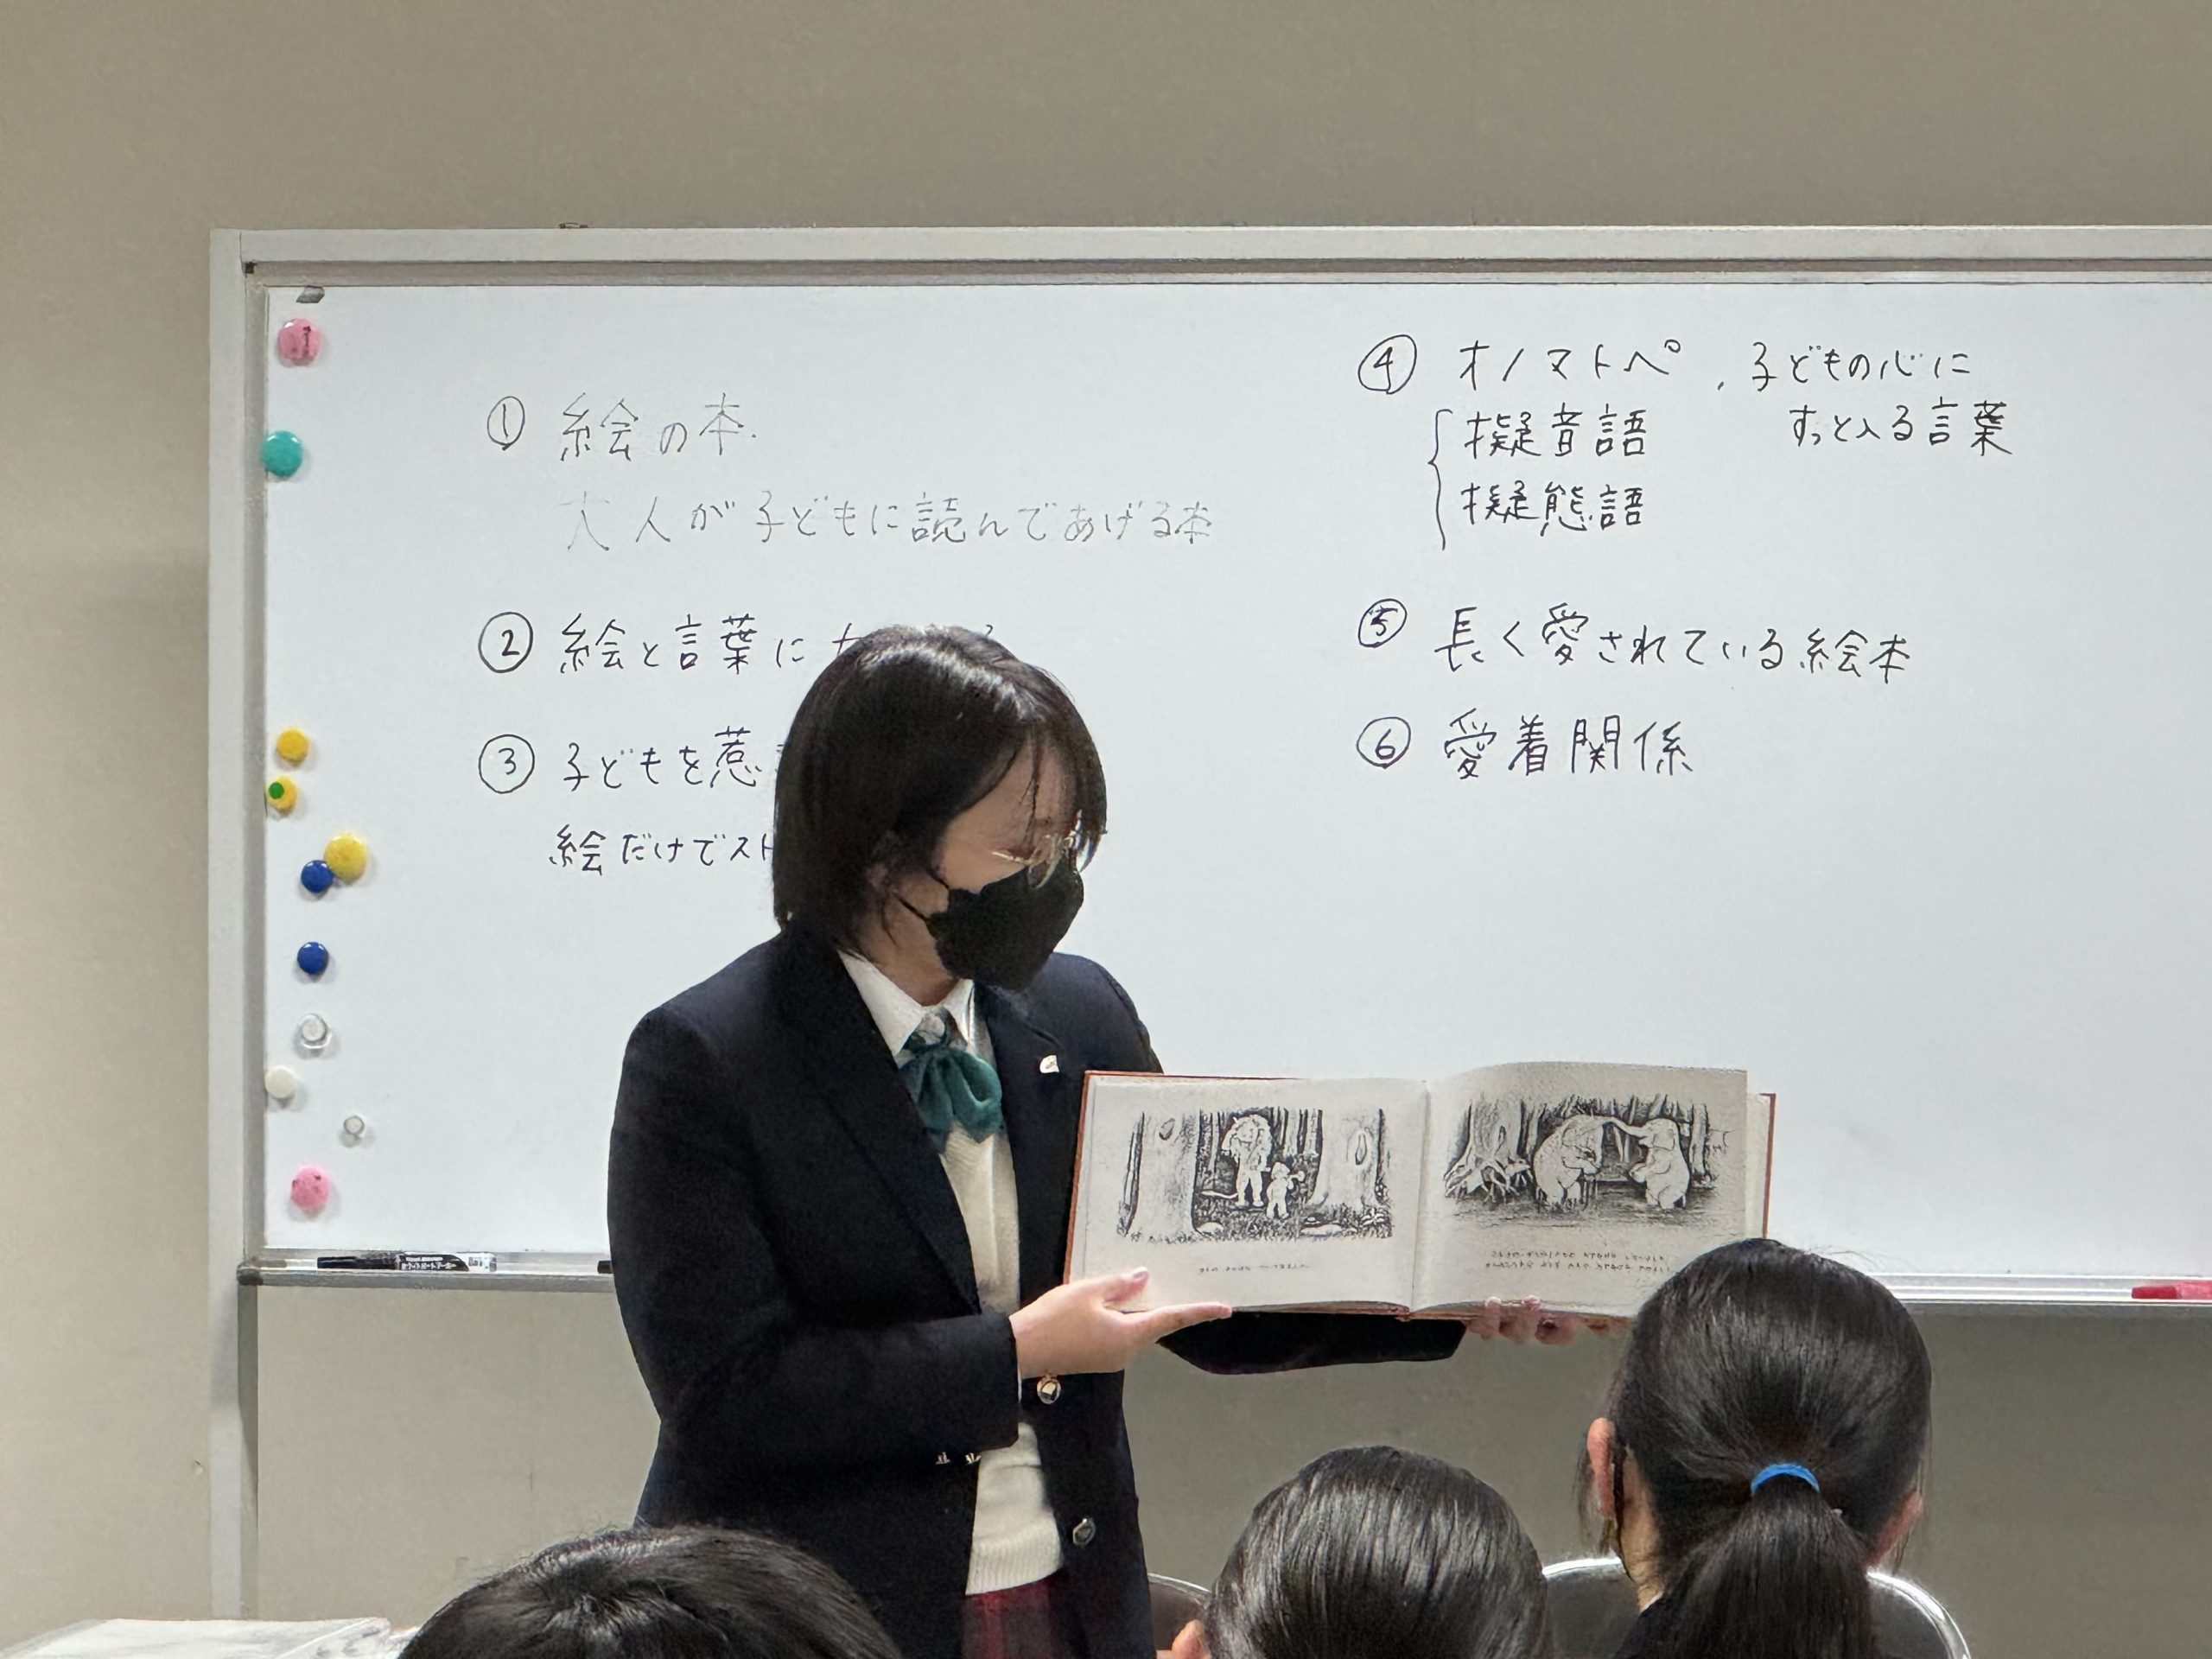 ① 絵の本.
大人が子どもに読んであげる本
② 絵と言葉に
③ 子どもを惹
絵だけでスト
④ オノマトペ , 子どもの心に
すっと入る言葉
擬音語
擬態語
⑤ 長く愛されている絵本
⑥ 愛着関係